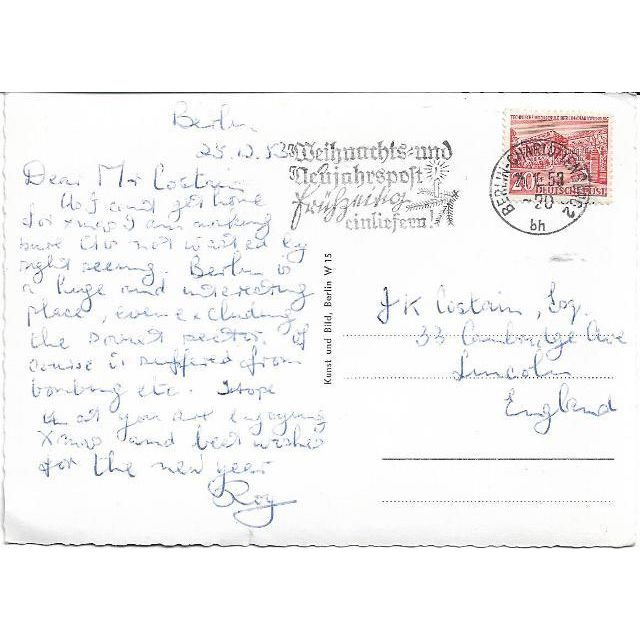 Berlin
25.12.53
Dear Mr Costain
get home
for xmas I am making
sure it is not wasted by
sight seeing. Berlin is
a huge and interesting
place, even excluding
the soviet sector. Of
course it suffered from
bombing etc. I hope
that you are enjoying
Xmas and best wishes
for the new year
Roy
Weihnachts- und
Neujahrspost
frühzeitig
einliefern!
TECHNISCHE HOCHSCHULE BERLIN-CHARLOTTENBURG
20 DEUTSCHE POST
BERLIN-CHARLOTTENBURG 2
53
-20
bh
Kunst und Bild, Berlin W 15
J K Costain, Esq.
33 Cambridge Ave
Lincoln
England